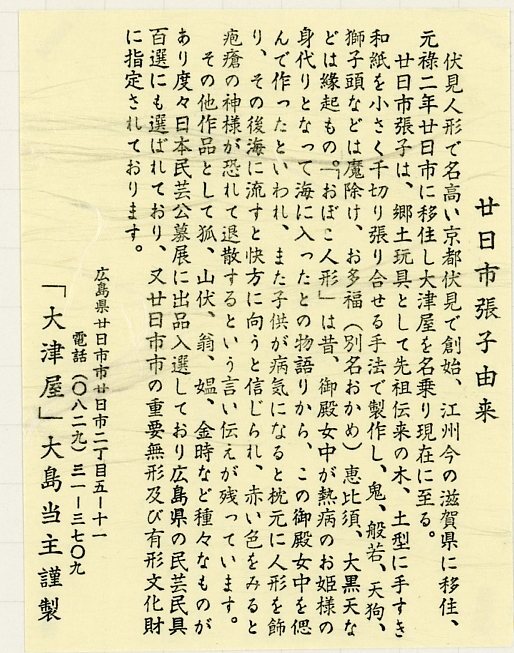 廿日市張子由来
伏見人形で名高い京都伏見で創始、江州今の滋賀県に移住、
元祿二年廿日市に移住し大津屋を名乗り現在に至る。
廿日市張子は、郷土玩具として先祖伝来の木、土型に手すき
和紙を小さく千切り張り合せる手法で製作し、鬼、般若、天狗、
獅子頭などは魔除け、お多福（別名おかめ）恵比須、大黒天な
どは縁起もの。「おぼこ人形」は昔、御殿女中が熱病のお姫様の
身代りとなって海に入ったとの物語りから、この御殿女中を偲
んで作ったといわれ、また子供が病気になると枕元に人形を飾
り、その後海に流すと快方に向うと信じられ、赤い色をみると
疱瘡の神様が恐れて退散するという言い伝えが残っています。
その他作品として狐、山伏、翁、媼、金時など種々なものが
あり度々日本民芸公募展に出品入選しており広島県の民芸民具
百選にも選ばれており、又廿日市市の重要無形及び有形文化財
に指定されております。
広島県廿日市市廿日市二丁目五ー十一
電話（〇八二九）三一ー三七〇九
「大津屋」大島当主謹製